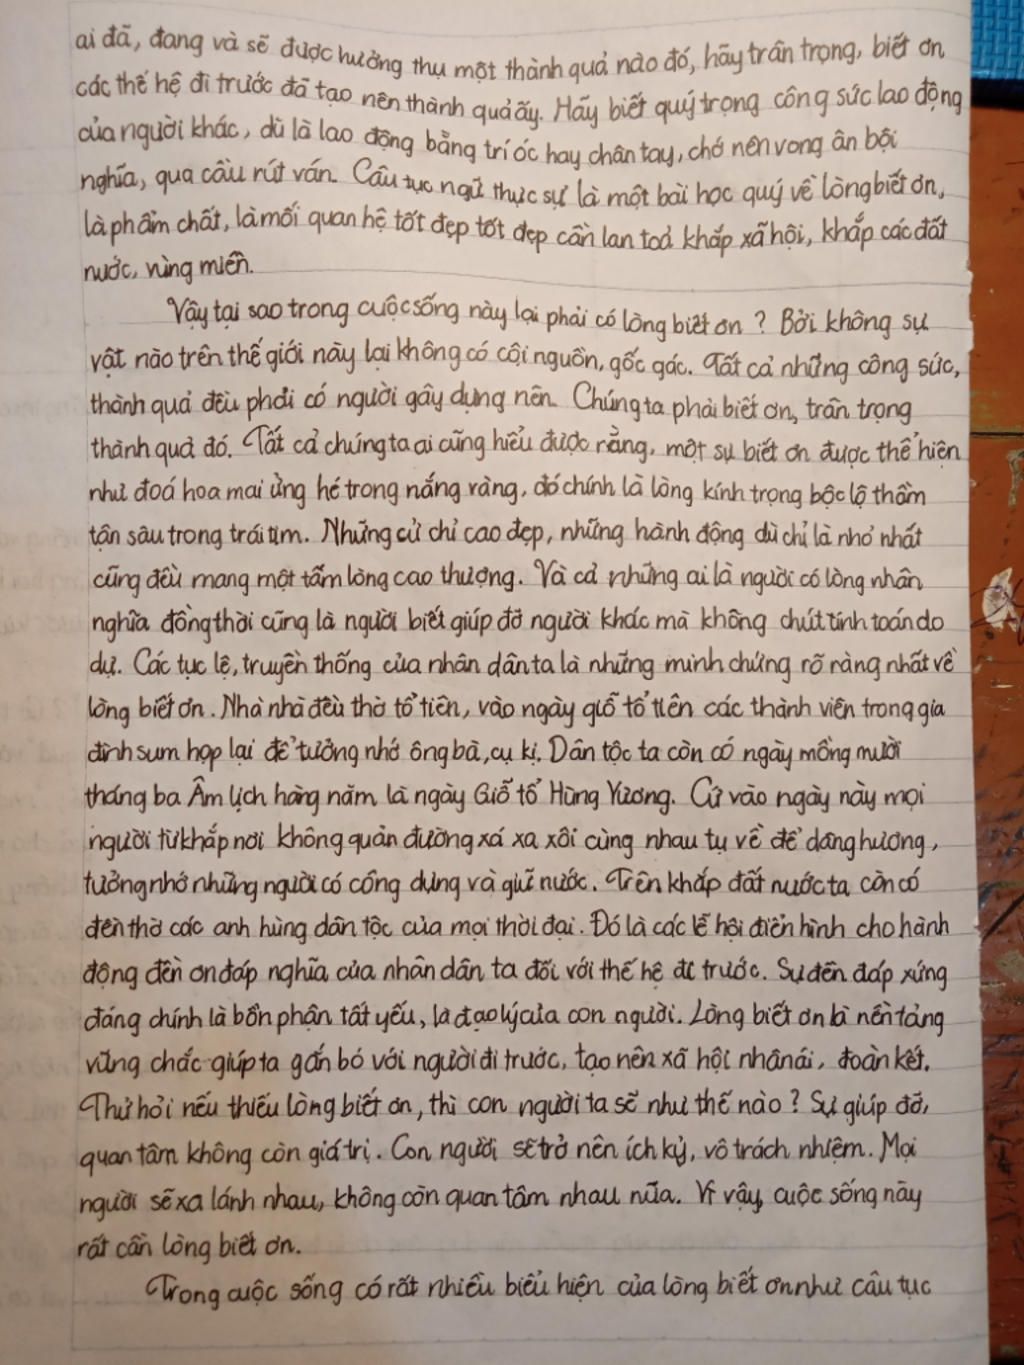 ai đã, đang và sẽ được hưởng thụ một thành quả nào đó, hãy trân trọng, biết ơn
các thế hệ đi trước đã tạo nên thành quả ấy. Hãy biết quý trọng công sức lao động
của người khác, dù là lao động bằng trí óc hay chân tay, chớ nên vong ân bội
nghĩa, qua cầu rút ván. Câu tục ngữ thực sự là một bài học quý về lòng biết ơn,
là phẩm chất, là mối quan hệ tốt đẹp tốt đẹp cần lan toả khắp xã hội, khắp các đất
nước, vùng miền.
Vậy tại sao trong cuộc sống này lại phải có lòng biết ơn ? Bởi không sự
vật nào trên thế giới này lại không có cội nguồn, gốc gác. Tất cả những công sức,
thành quả đều phải có người gây dựng nên. Chúng ta phải biết ơn, trân trọng
thành quả đó. Tất cả chúng ta ai cũng hiểu được rằng, một sự biết ơn được thể hiện
như đoá hoa mai ửng hé trong nắng vàng, đó chính là lòng kính trọng bộc lộ thầm
tận sâu trong trái tim. Những cử chỉ cao đẹp, những hành động dù chỉ là nhỏ nhất
cũng đều mang một tấm lòng cao thượng. Và cả những ai là người có lòng nhân
nghĩa đồng thời cũng là người biết giúp đỡ người khác mà không chút tính toán do
dự. Các tục lệ, truyền thống của nhân dân ta là những minh chứng rõ ràng nhất về
lòng biết ơn. Nhà nhà đều thờ tổ tiên, vào ngày giỗ tổ tiên các thành viên trong gia
đình sum họp lại để tưởng nhớ ông bà, cụ kị. Dân tộc ta còn có ngày mồng mười
tháng ba Âm lịch hàng năm là ngày Giỗ tổ Hùng Vương. Cứ vào ngày này mọi
người từ khắp nơi không quản đường xá xa xôi cùng nhau tụ về để dâng hương,
tưởng nhớ những người có công dựng và giữ nước. Trên khắp đất nước ta còn có
đền thờ các anh hùng dân tộc của mọi thời đại. Đó là các lễ hội điển hình cho hành
động đền ơn đáp nghĩa của nhân dân ta đối với thế hệ đi trước. Sự đền đáp xứng
đáng chính là bổn phận tất yếu, là đạo lý của con người. Lòng biết ơn là nền tảng
vững chắc giúp ta gắn bó với người đi trước, tạo nên xã hội nhân ái, đoàn kết.
Thử hỏi nếu thiếu lòng biết ơn, thì con người ta sẽ như thế nào ? Sự giúp đỡ,
quan tâm không còn giá trị. Con người sẽ trở nên ích kỷ, vô trách nhiệm. Mọi
người sẽ xa lánh nhau, không còn quan tâm nhau nữa. Vì vậy, cuộc sống này
rất cần lòng biết ơn.
Trong cuộc sống có rất nhiều biểu hiện của lòng biết ơn như câu tục